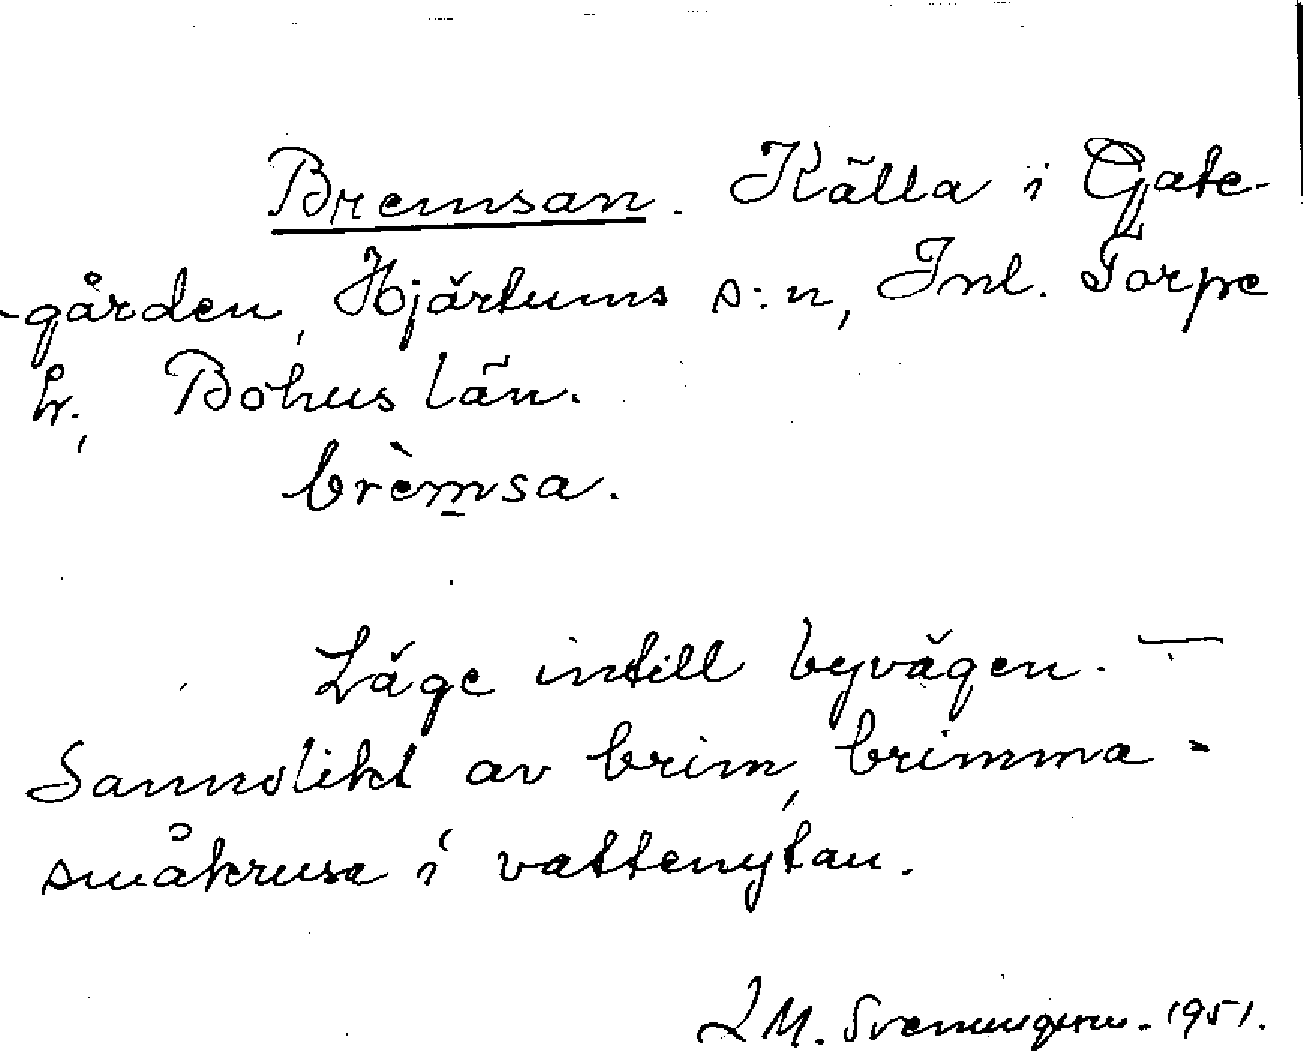 Bremsan. Källa i Gate-
-gården, Hjärtums s:n, Inl. Torpe
hr., Bohus län.
brèmsa.
Läge intill byvägen. —
Sannolikt av brim, brimma =
småkrusa i vattenytan.
L M. Svenungsson. 1951.